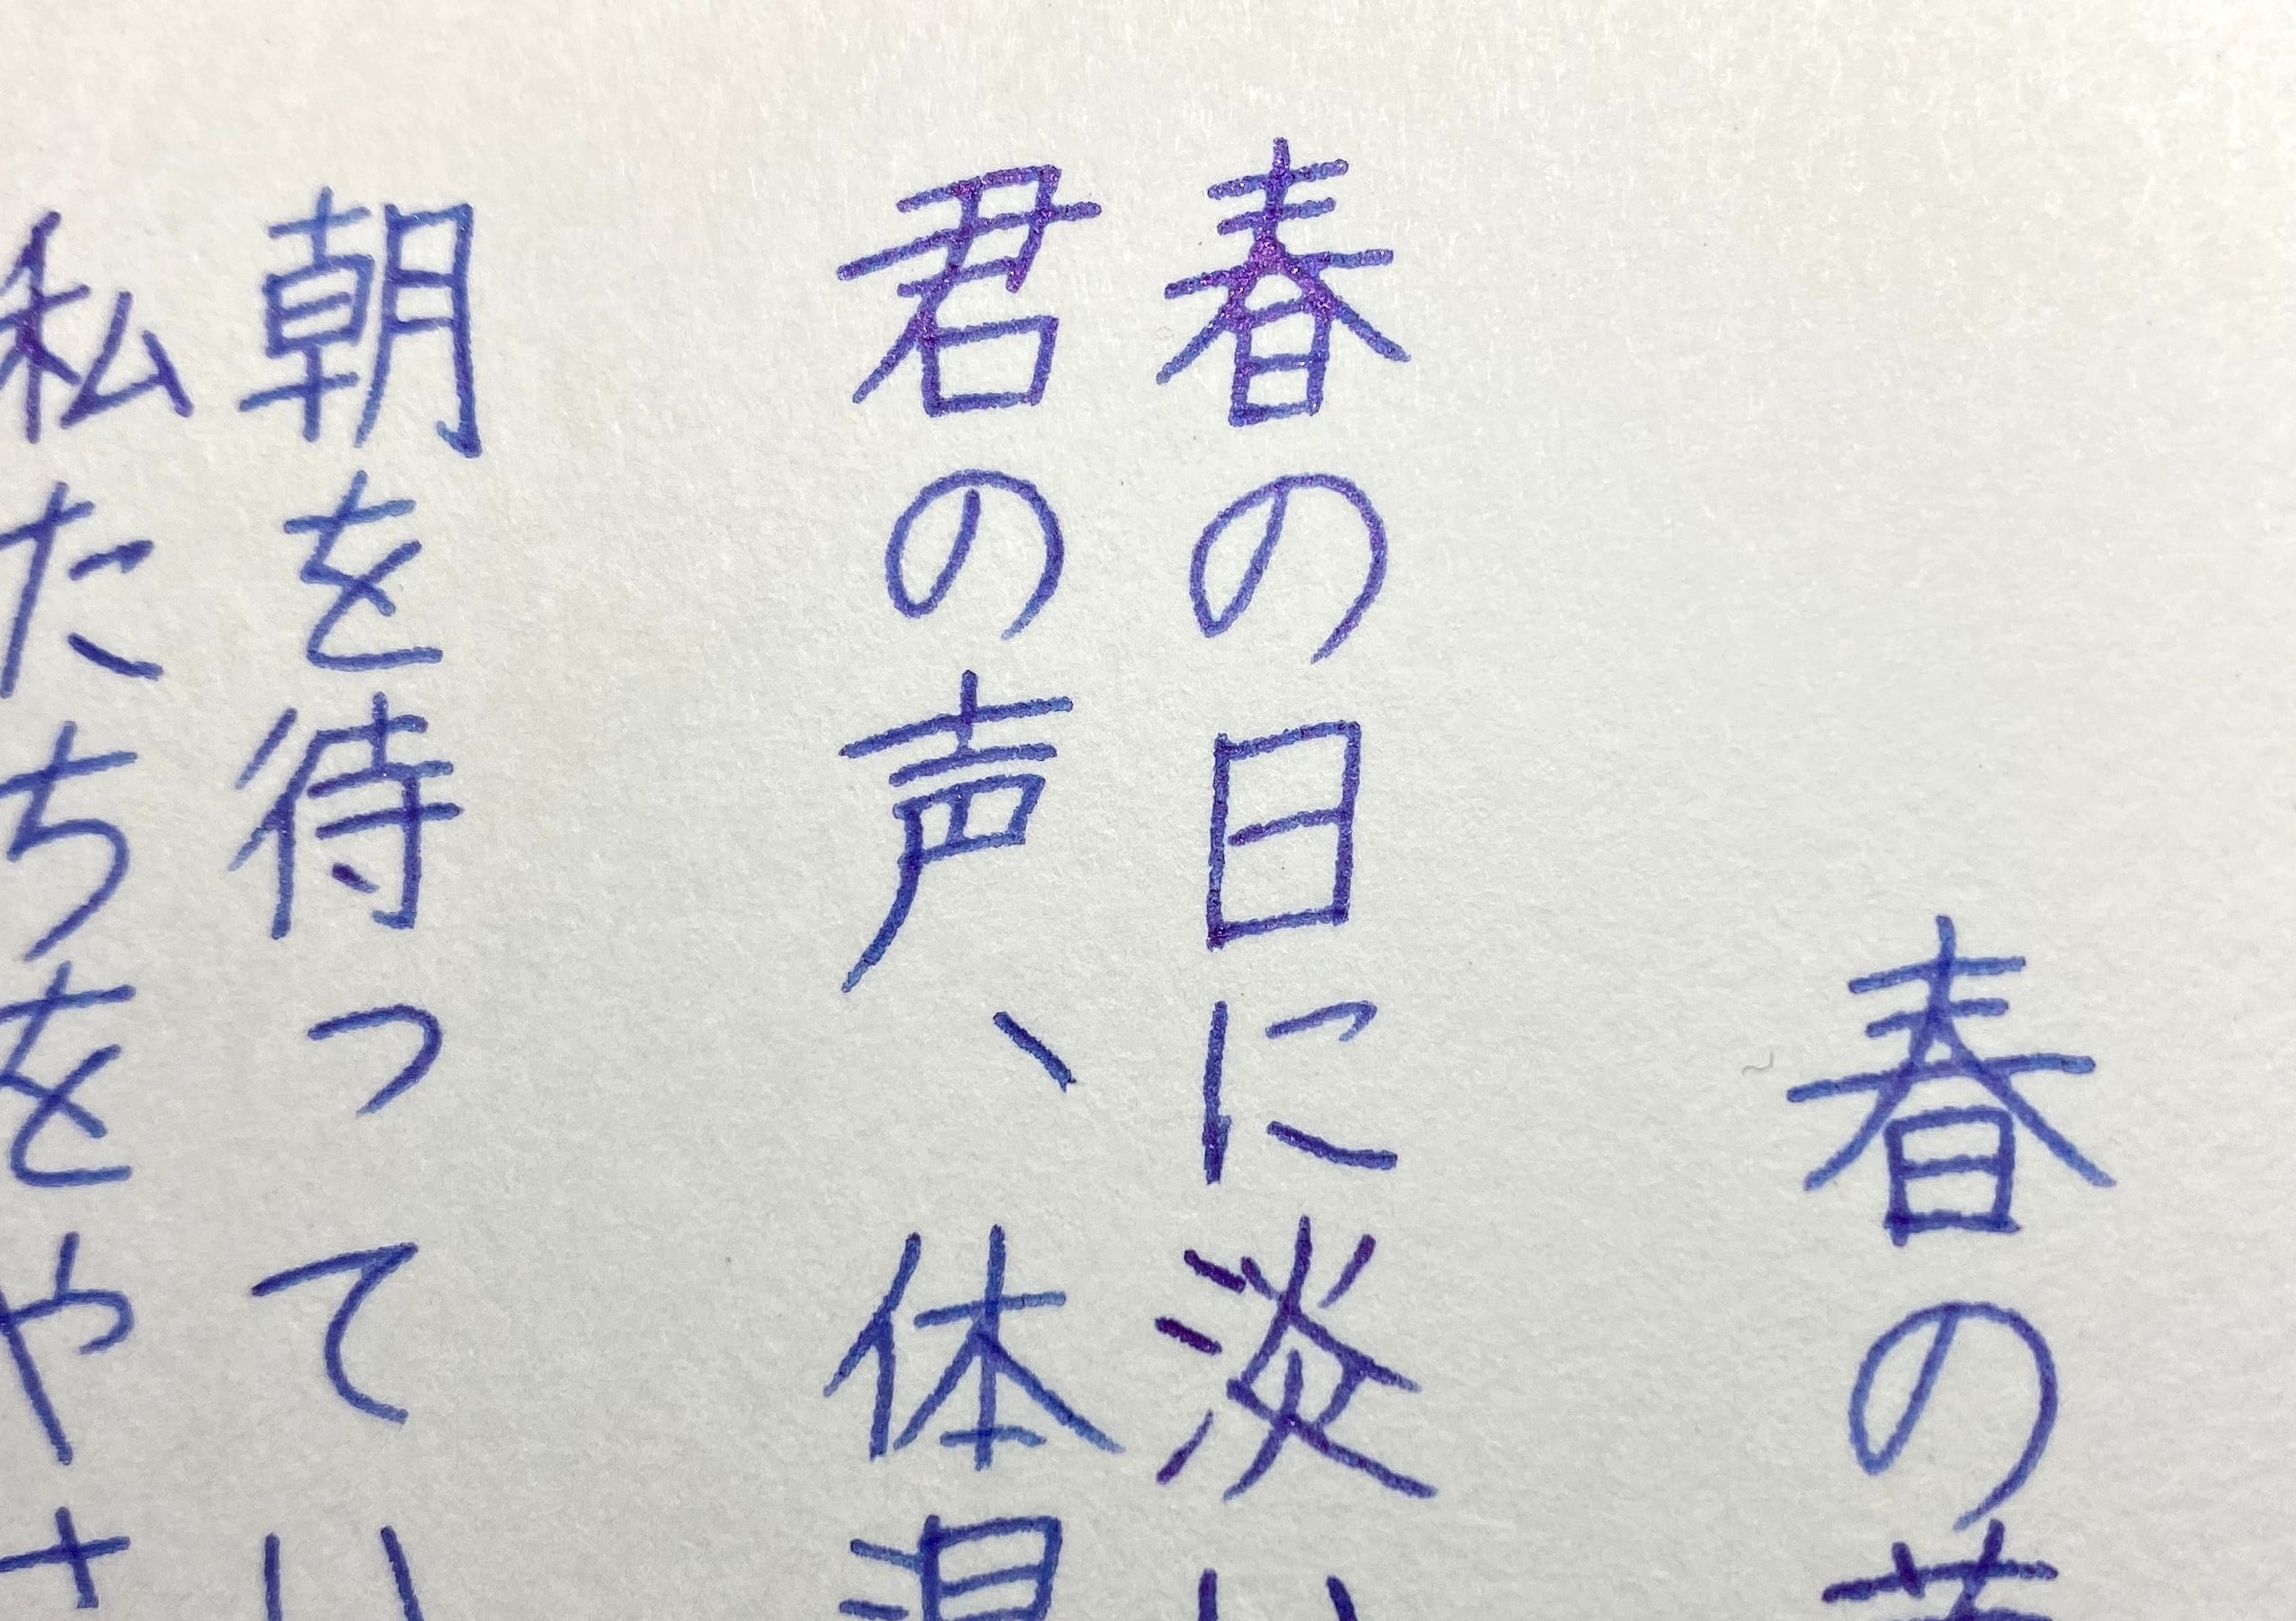 春の
春の日に淡い
君の声、体温
朝を待ってい
私たちをやさ